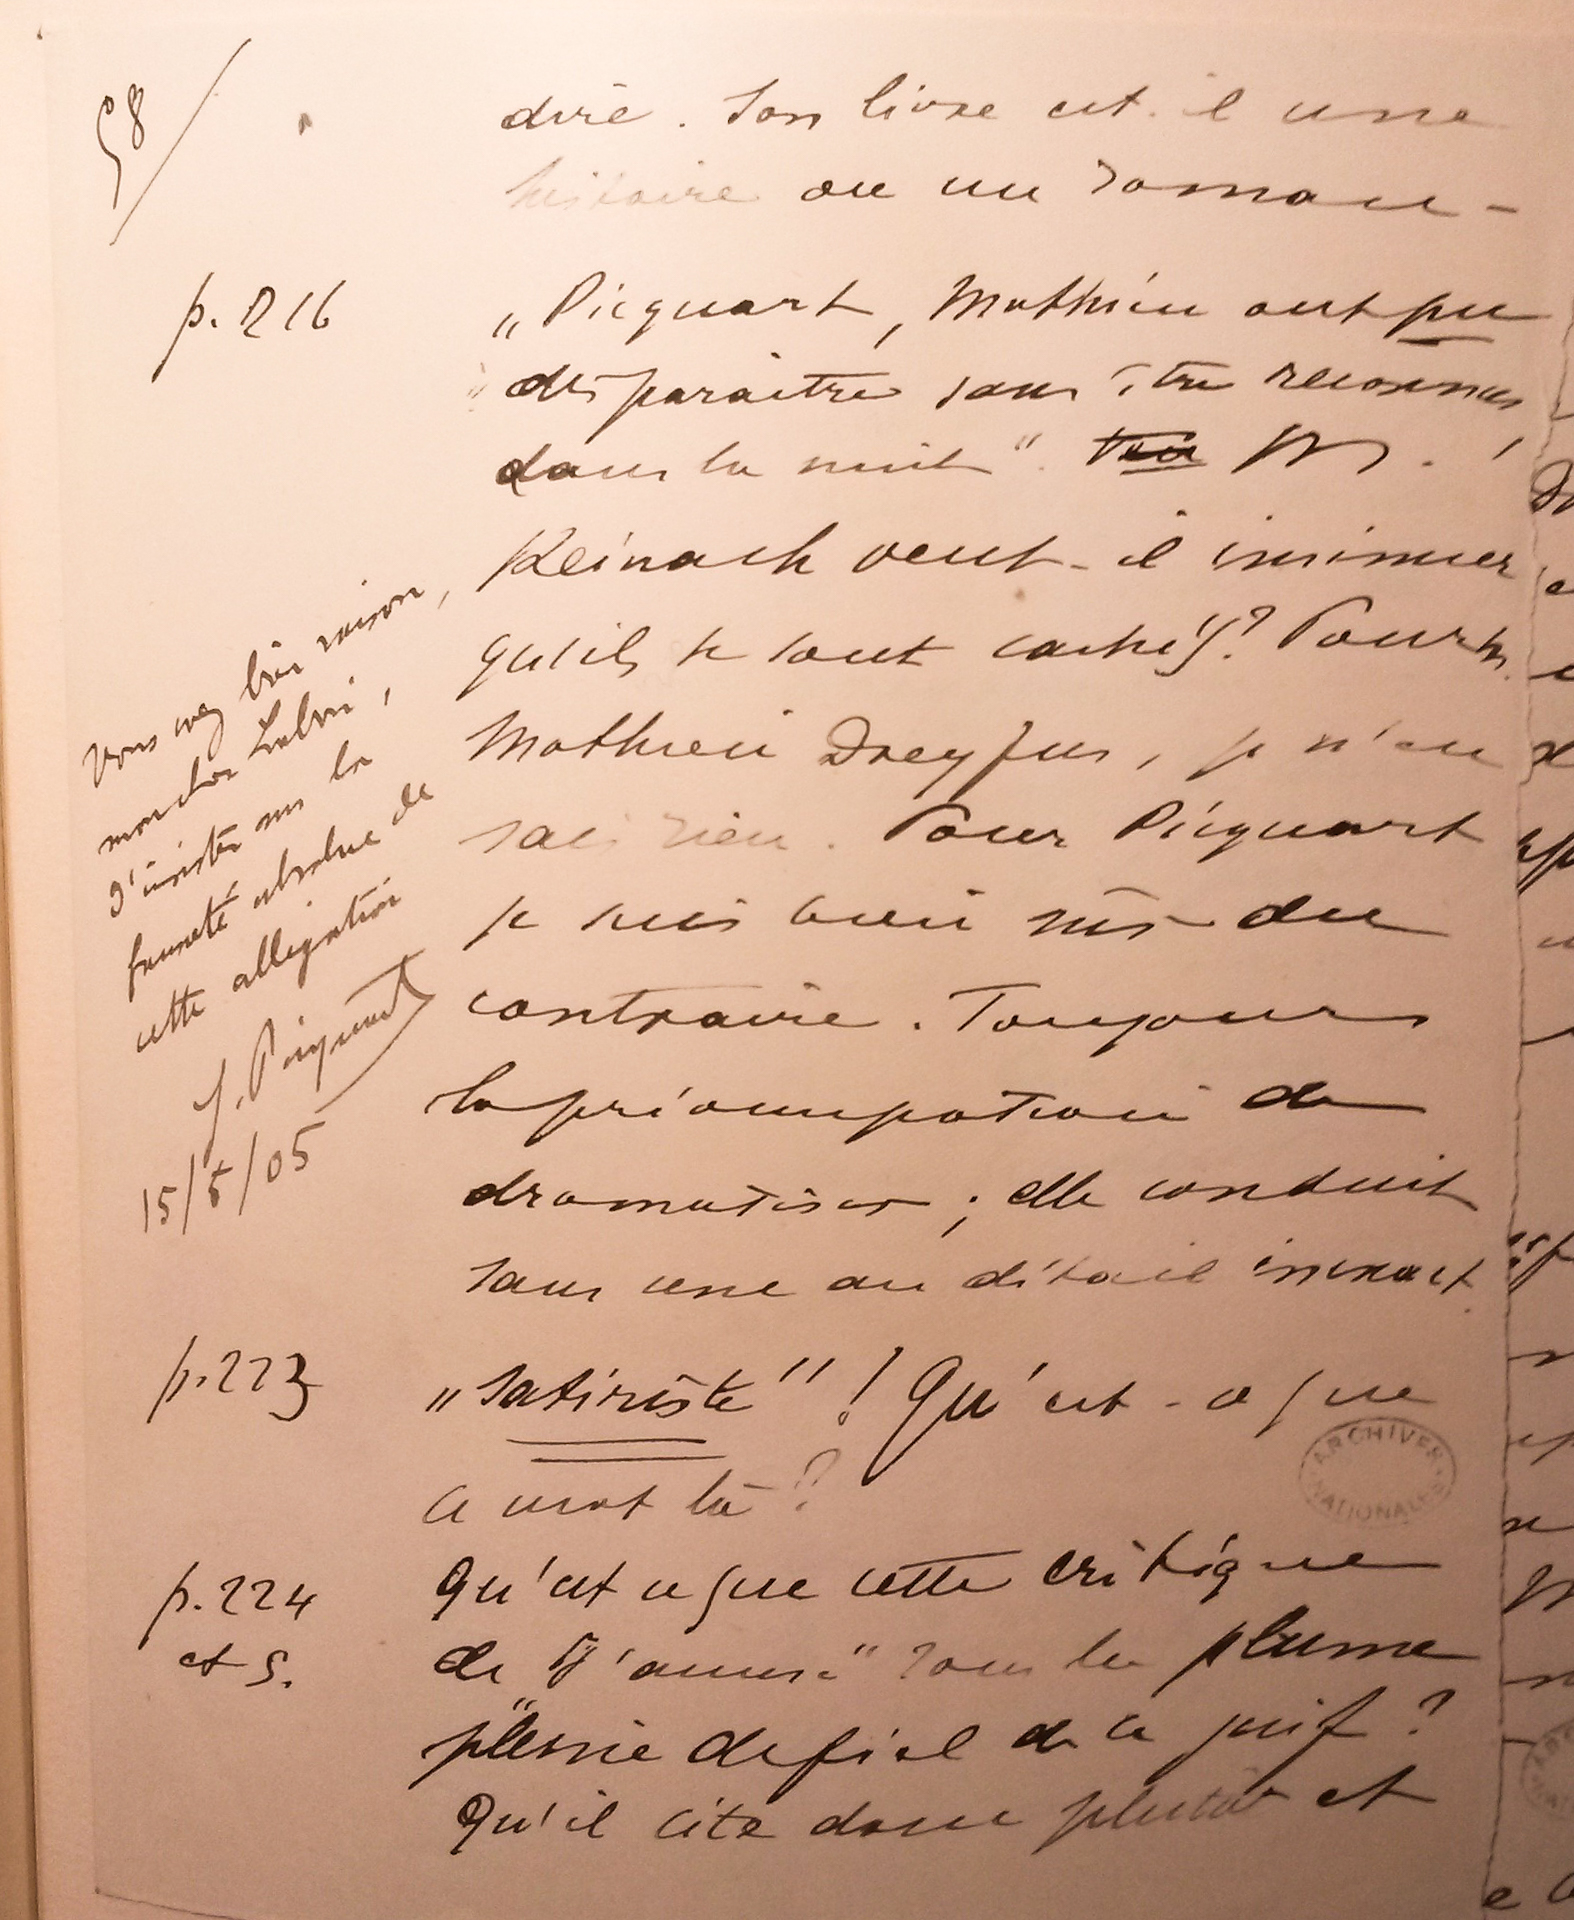 58/
dire. Son livre est-il une
histoire ou un roman-
p. 216
„Picquart, Mathieu ont pu
"disparaître sans être reconnus,
dans la nuit". M.
Reinach veut-il insinuer
qu'ils se sont cachés? Pour M.
Mathieu Dreyfus, je n'en
sais rien. Pour Picquart
je suis bien sûr du
contraire. Toujours
la préoccupation de
dramatiser; elle conduit
sans cesse au détail inexact.
Vous avez bien raison,
mon cher Labori,
d'insister sur la
fausseté absolue de
cette allégation
G. Picquart
15/5/05
p. 223
„satiriste"! Qu'est-ce que
ce mot là?
p. 224
et s.
Qu'est ce que cette critique
de "J'accuse" sous la plume
pleine de fiel de ce juif?
Qu'il cite donc plutôt et
ARCHIVES
NATIONALES